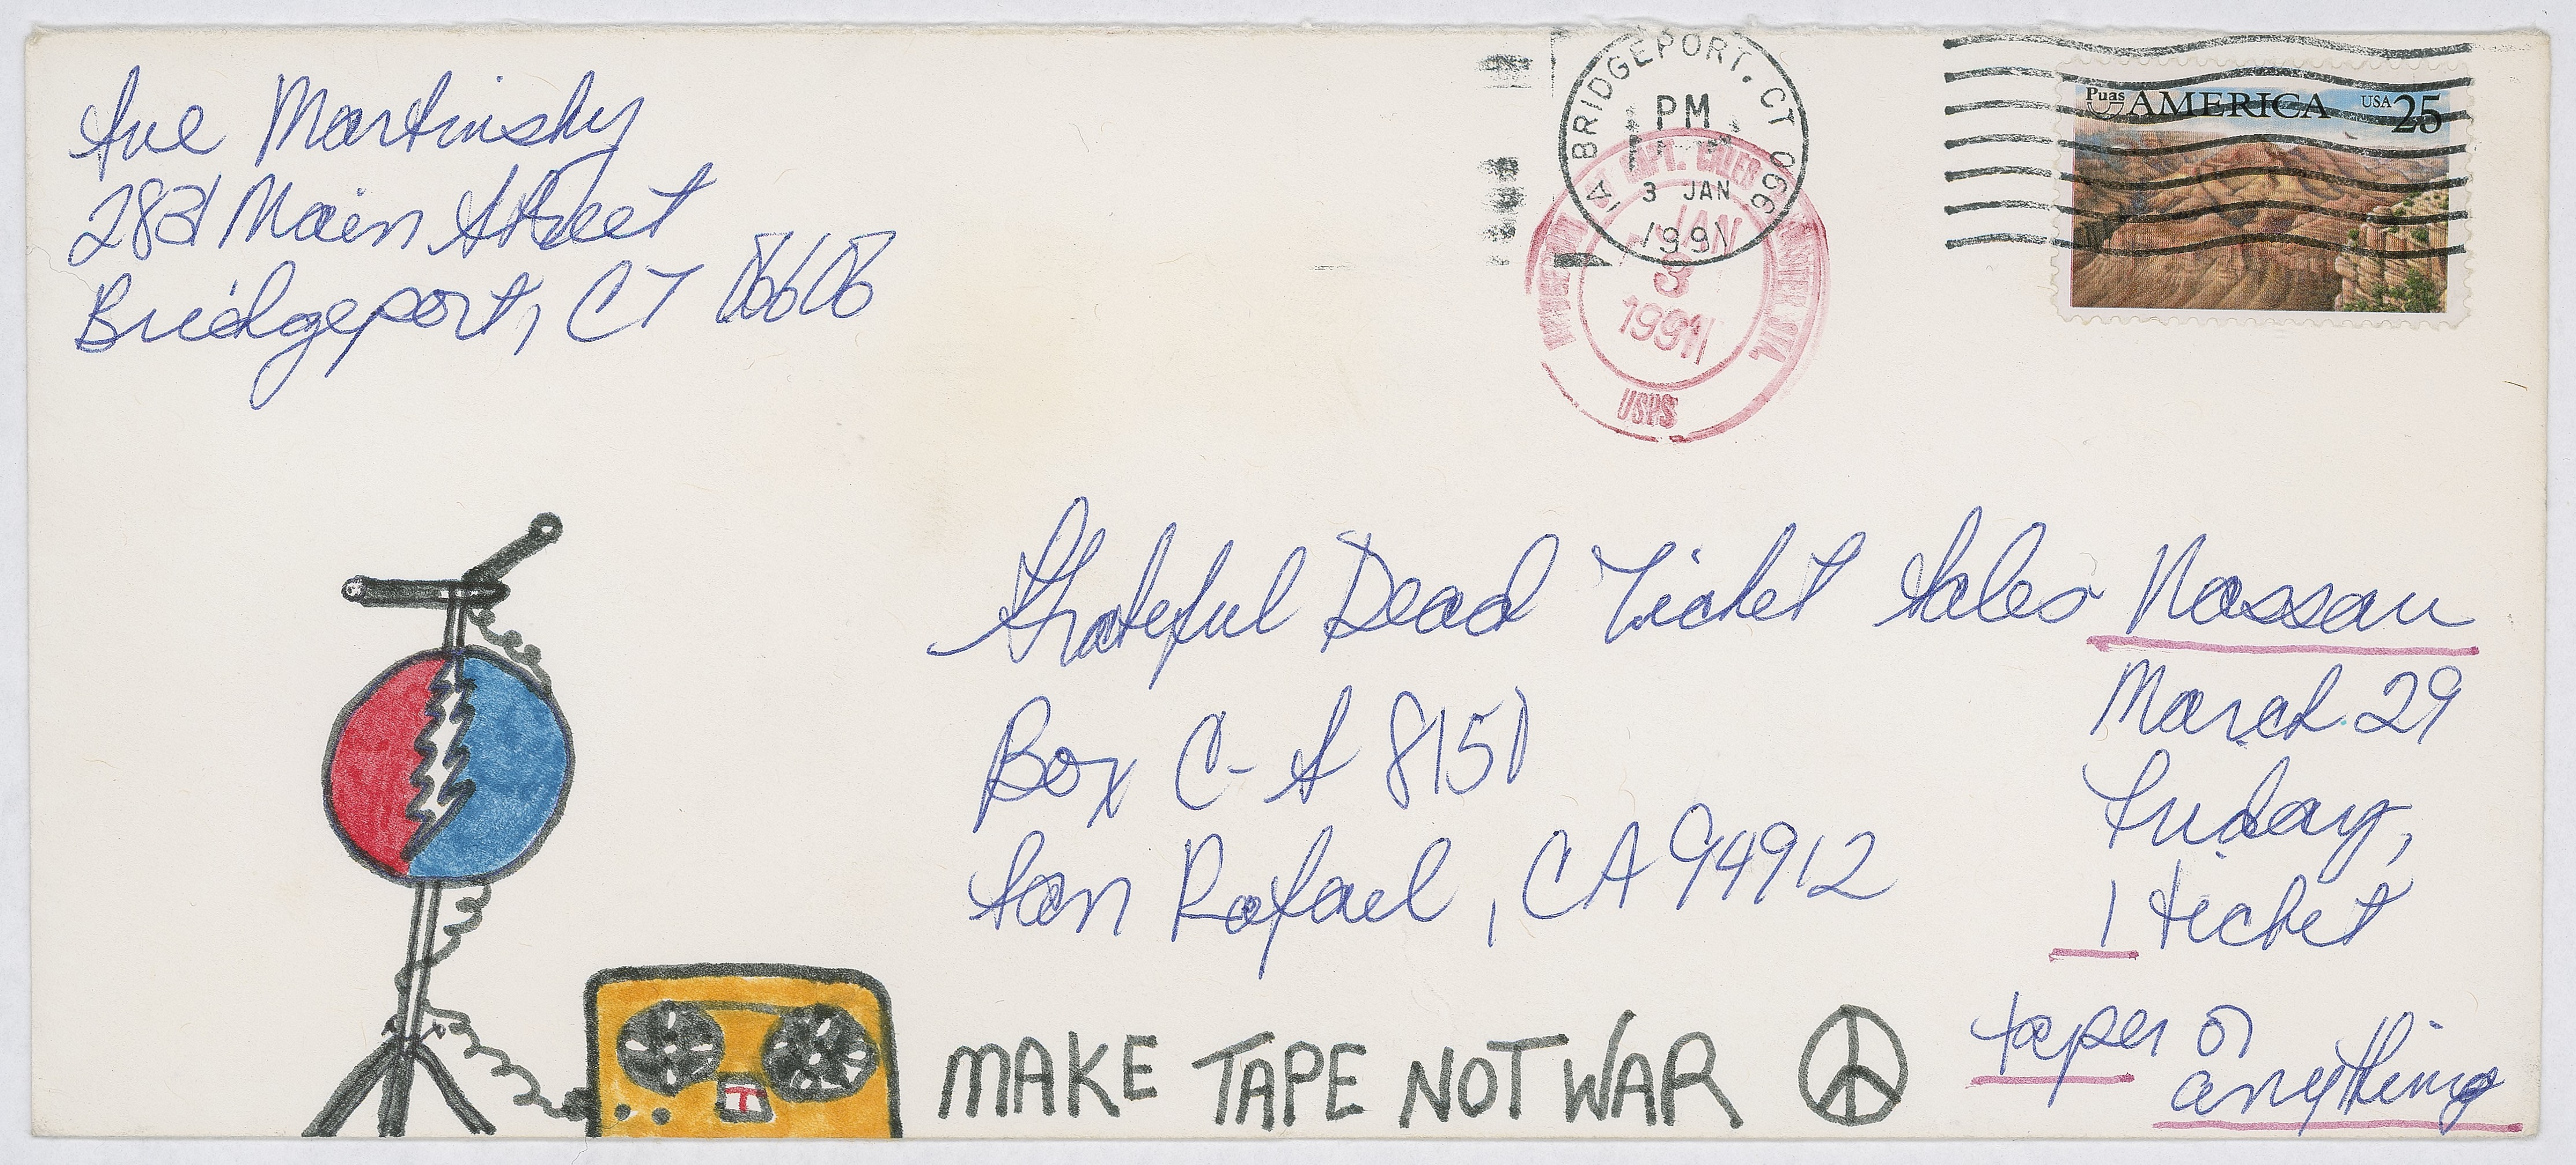 Sue Martinsky
2831 Main Street
Bridgeport, CT 06606
BRIDGEPORT, CT 066
PM
3 JAN
1991
CAPT. CALEB
JAN
3
1991
USPS
Puas
AMERICA
USA 25
Grateful Dead Ticket Sales
Box C-S 8151
San Rafael, CA 94912
Nassau
March 29
Friday,
1 ticket
taper or
anything
MAKE TAPE NOT WAR
T